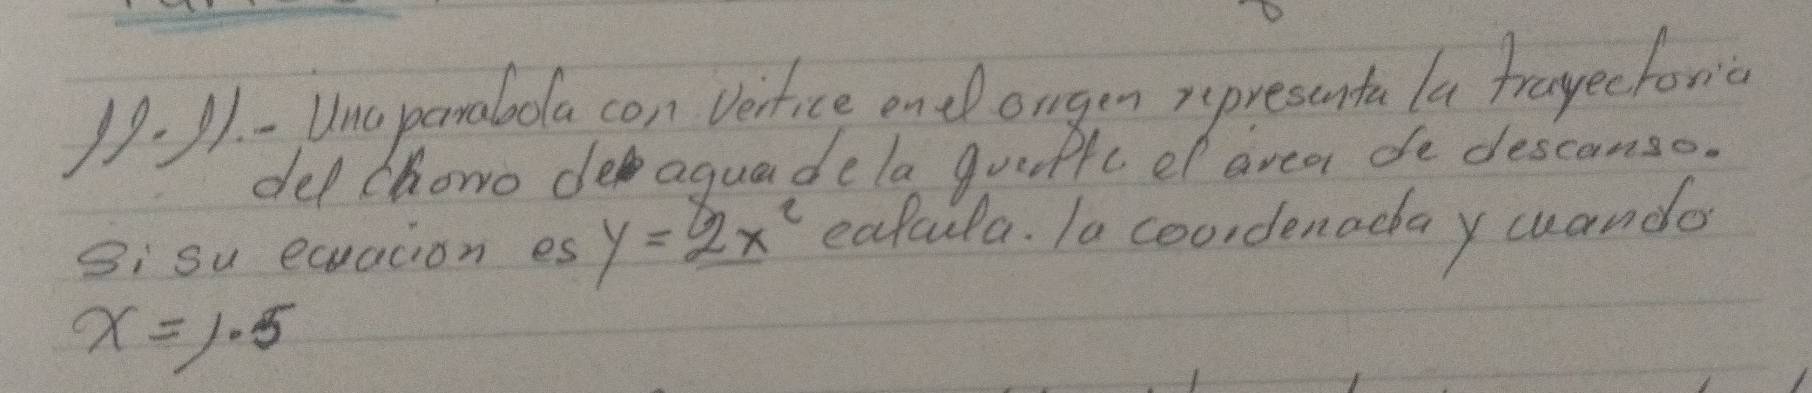 11.11.- Una parabola con Vertice en el origen representa la trayectoria
del chorro de agua de la el área de descanso.
si su ecuacion es y = 2x² calcula. la coordenada y cuando
x = 1.5